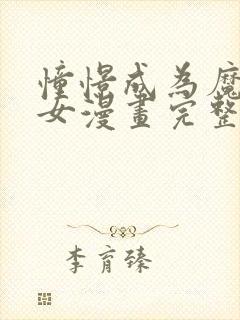 憧憬成為魔
女漫畫完整
李育臻